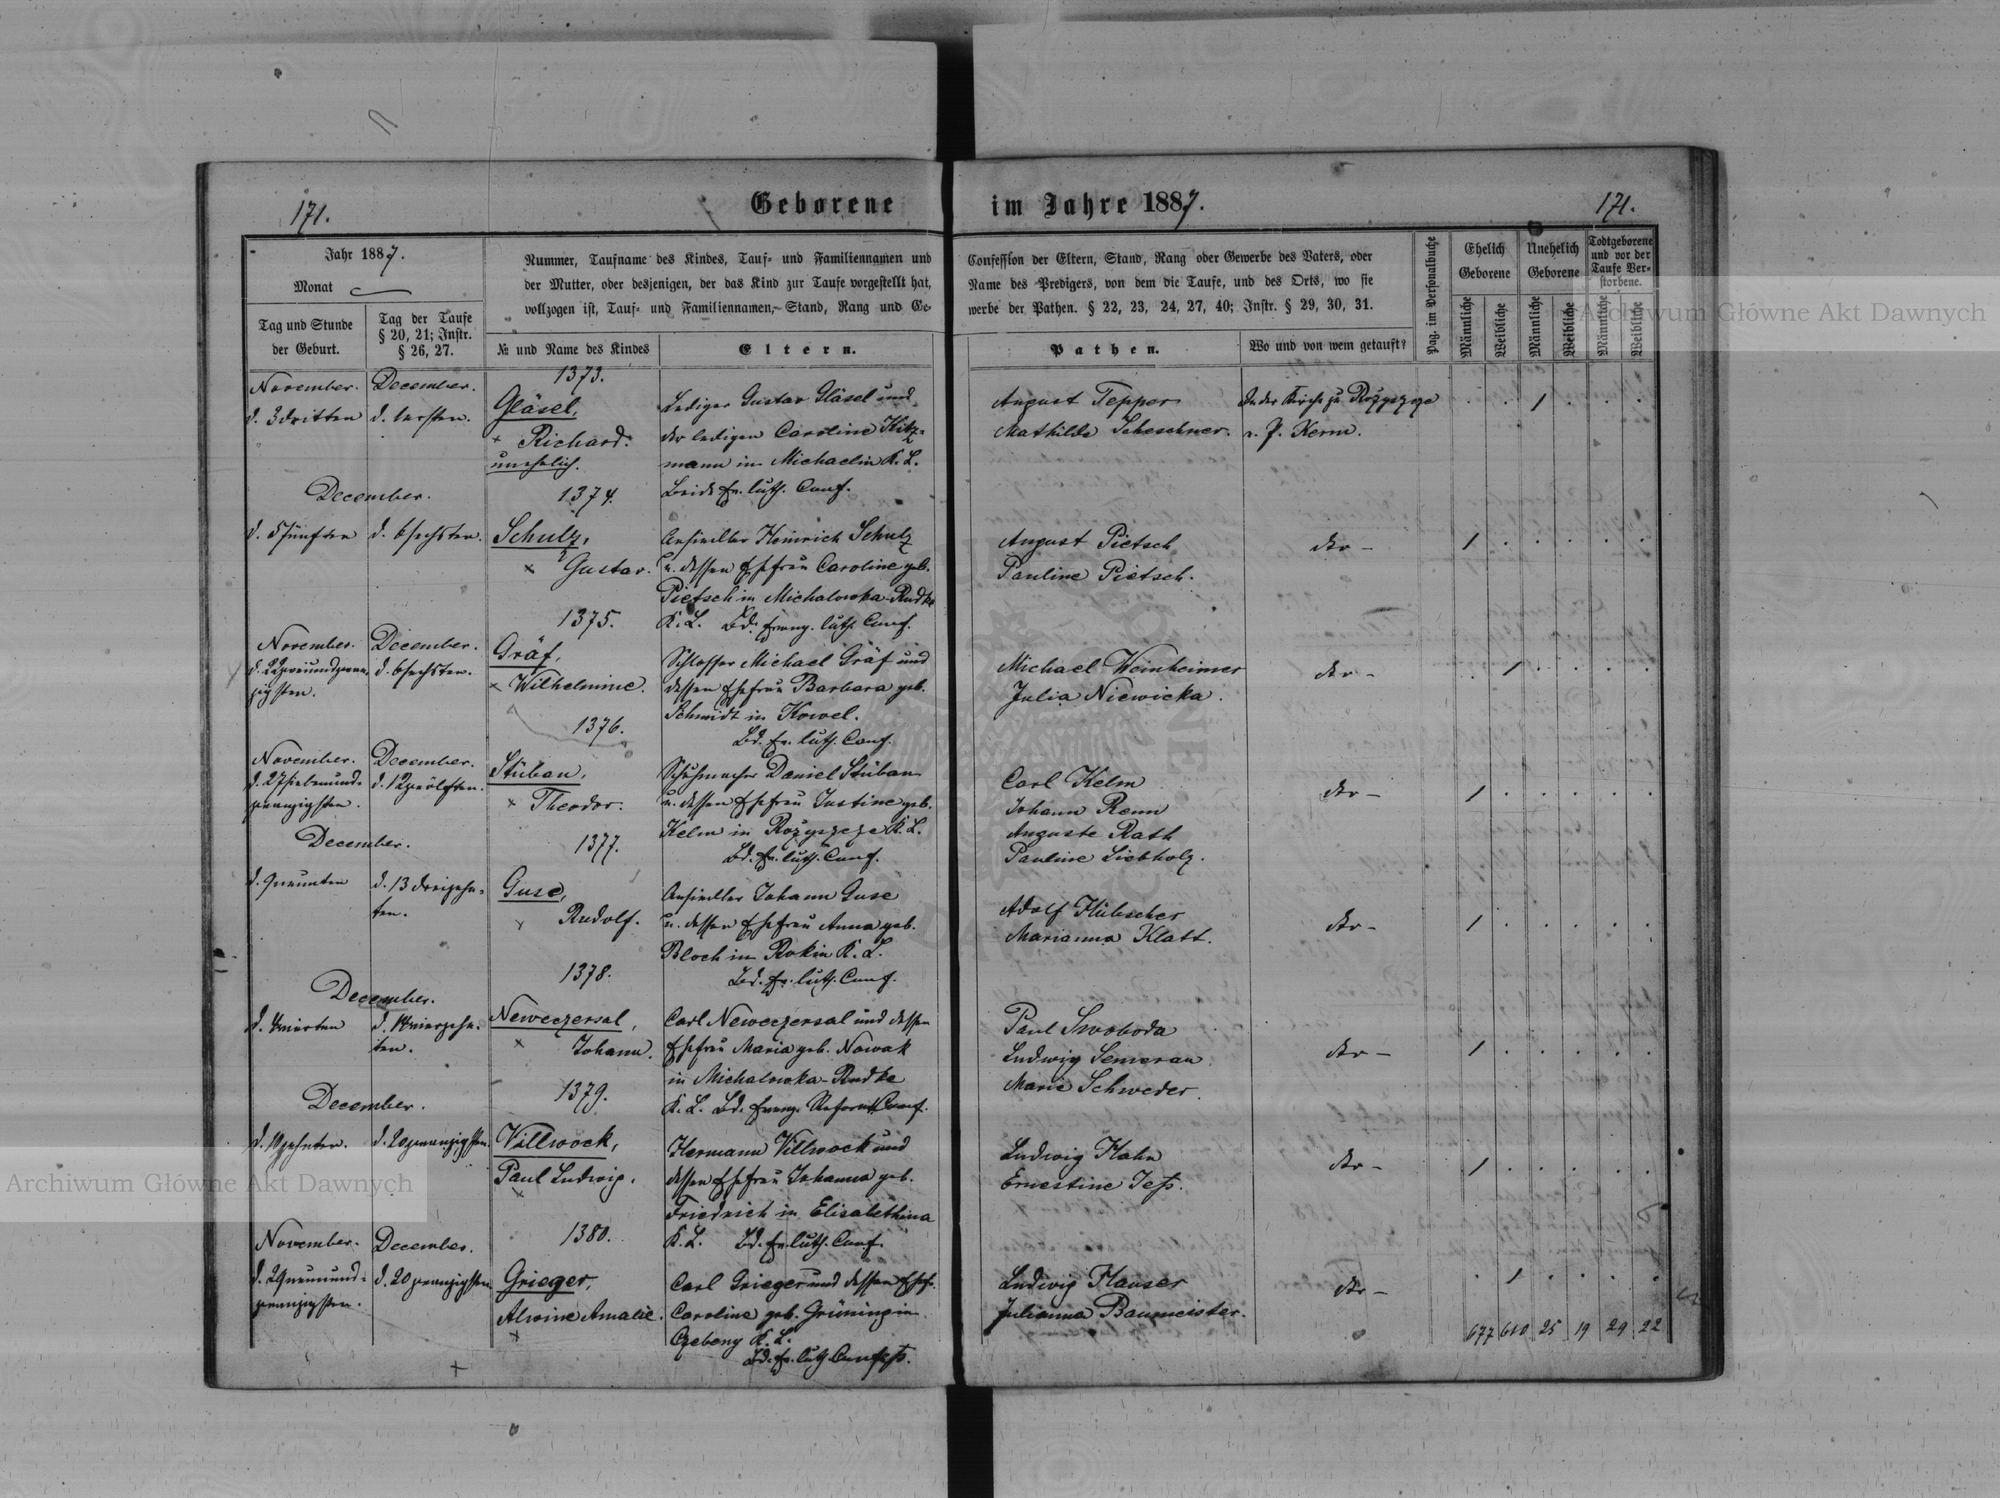 171.
Geborene im Jahre 1887.
171.
Jahr 1887.
Monat
Tag und Stunde der Geburt.
Tag der Taufe § 20, 21; Instr. § 26, 27.
Nummer, Taufname des Kindes, Tauf- und Familiennamen und
der Mutter, oder desjenigen, der das Kind zur Taufe vorgestellt hat,
vollzogen ist, Tauf- und Familiennamen, Stand, Rang und Ge-
№ und Name des Kindes
Eltern.
Confession der Eltern, Stand, Rang oder Gewerbe des Vaters, oder
Name des Predigers, von dem die Taufe, und des Orts, wo sie
werbe der Pathen. § 22, 23, 24, 27, 40; Instr. § 29, 30, 31.
Pathen.
Wo und von wem getauft?
Pag. im Personalbuche
Ehelich Geborene
Unehelich Geborene
Todtgeborene und vor der Taufe Verstorbene.
Männliche
Weibliche
Männliche
Weibliche
Männliche
Weibliche
1373.
November. December.
d. 3 dritten d. 1 ersten.
Gläsel,
Richard.
unehelich.
Lediger Gustav Gläsel und
der ledigen Caroline Kitz-
mann in Michaelin K. L.
Beide ev. luth. Conf.
August Tepper
Mathilde Scheschner.
In der Kirche zu Rożyszcze
v. P. Kerm.
1374.
December.
d. 5 fünften d. 6 sechsten.
Schulz,
Gustav.
Ansiedler Heinrich Schulz
u. dessen Ehefrau Caroline geb.
Pietsch in Michalowka-Rudke
K. L. Bd. evang. luth. Conf.
August Pietsch
Pauline Pietsch.
dto -
1375.
November. December.
d. 22 zweiundzwan-
zigsten.
d. 6 sechsten.
Gräf,
Wilhelmine.
Schlosser Michael Gräf und
dessen Ehefrau Barbara geb.
Schmidt in Kowel.
Bd. ev. luth. Conf.
Michael Weinheimer
Julia Niewicka.
dto -
1376.
November. December.
d. 27 siebenund-
zwanzigsten.
d. 12 zwölften.
Stüban,
Theodor.
Schuhmacher Daniel Stüban
u. dessen Ehefrau Justine geb.
Kelm in Rożyszcze K. L.
Bd. ev. luth. Conf.
Carl Kelm
Johann Renn
Auguste Rath
Pauline Liebholz.
dto -
1377.
December.
d. 9 neunten
d. 13 dreizehn-
ten.
Guse,
Rudolf.
Ansiedler Johann Guse
u. dessen Ehefrau Anna geb.
Bloch in Rokin K. L.
Bd. ev. luth. Conf.
Adolf Hübscher
Marianna Klatt.
dto -
1378.
December.
d. 4 vierten
d. 14 vierzehn-
ten.
Neweczersal,
Johann.
Carl Neweczersal und dessen
Ehefrau Maria geb. Nowak
in Michalowka-Rudke
K. L. Bd. evang. Reform. Conf.
Paul Swoboda
Ludwig Semerau
Marie Schweder.
dto -
1379.
December.
d. 10 zehnten. d. 20 zwanzigsten.
Villwock,
Paul Ludwig.
Hermann Villwock und
dessen Ehefrau Johanna geb.
Friedrich in Elisabethina
K. L. Bd. ev. luth. Conf.
Ludwig Hahn
Ernestine Jeß.
dto -
1380.
November. December.
d. 29 neunund-
zwanzigsten.
d. 20 zwanzigsten
Grieger,
Alwine Amalie.
Carl Grieger und dessen Ehefr.
Caroline geb. Grüning in
Czebeny K. L.
Bd. ev. luth. Confess.
Ludwig Hauser
Julianna Baumeister.
dto -
677 610 25 19 29 22
Archiwum Główne Akt Dawnych
Archiwum Główne Akt Dawnych